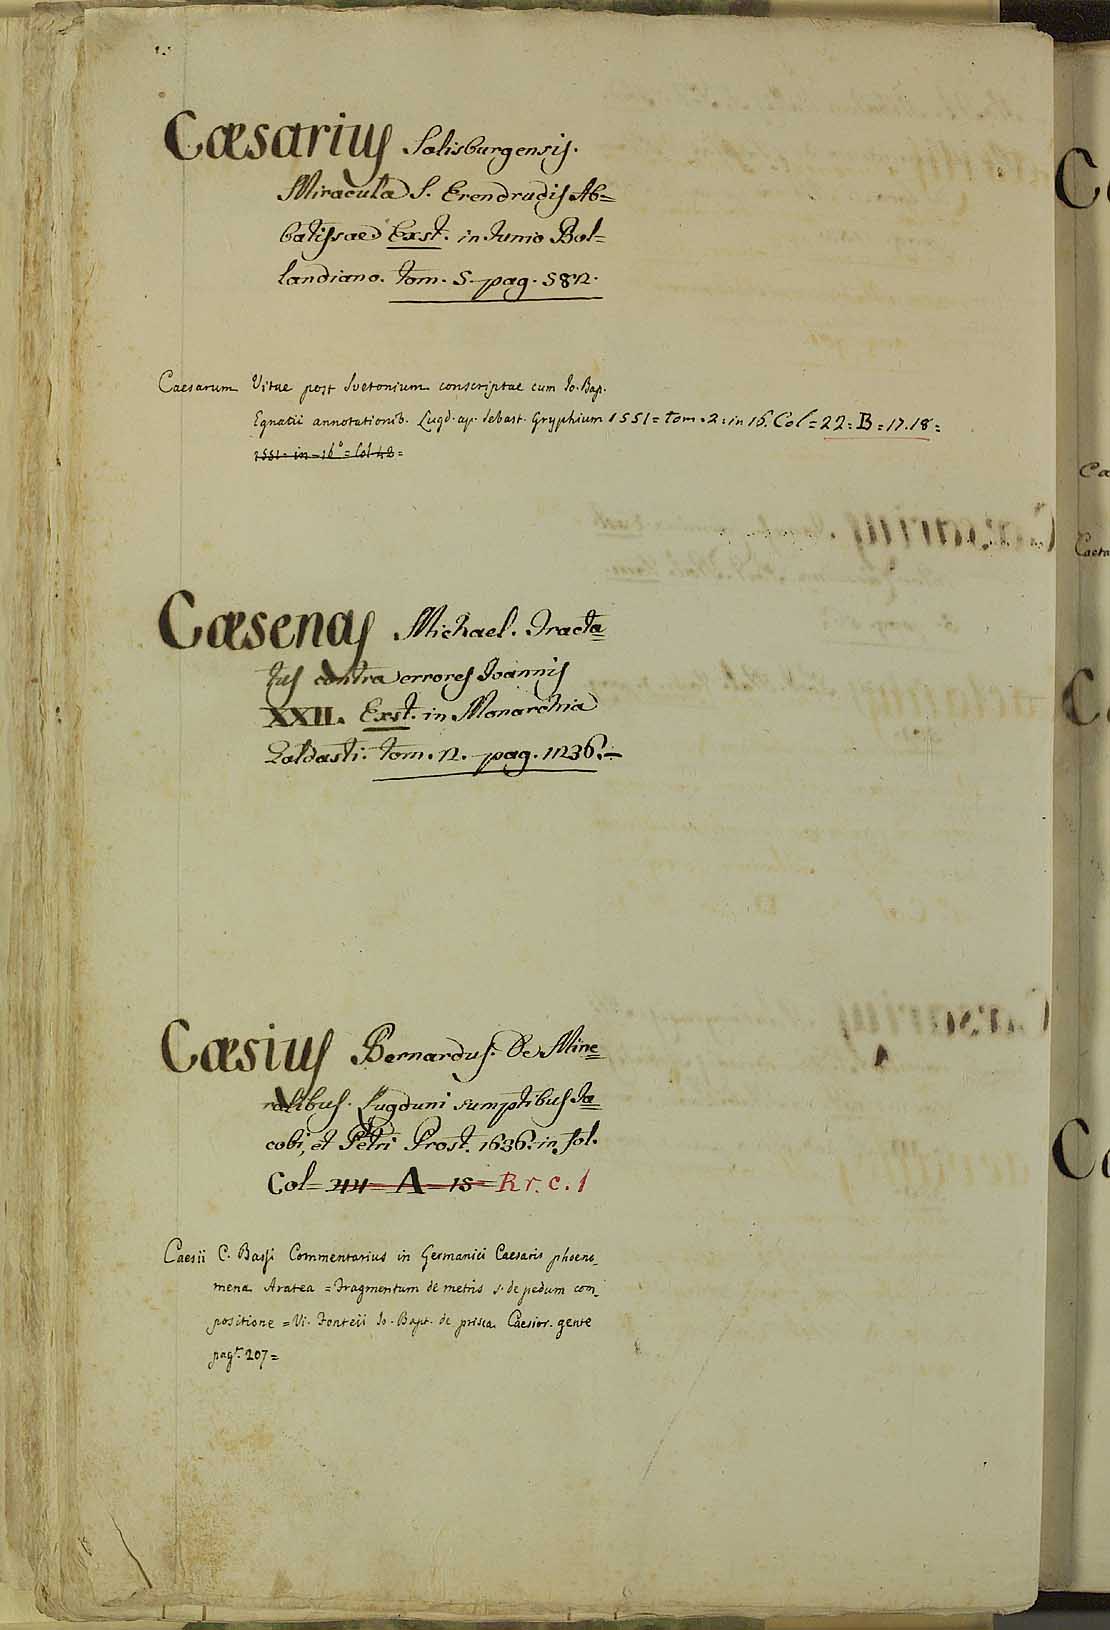 Cæsarius Salisburgensis.
Miracula S. Erendrudis Ab=
batissae Exst. in Junio Bol=
landiano. Tom. 5. pag. 582.
Caesarum Vitae post Svetonium conscriptae cum Jo. Bap.
Egnatii annotationib. Lugd. ap. Sebast. Gryphium 1551= tom. 2. in 16. Col = 22= B = 17.18=
1551= in = 16° = Col 48=
Cæsenas Michael. Tracta=
tus contra errores Joannis
XXII. Exst. in Monarchia
Goldasti. Tom. 2. pag. 1236.
Cæsius Bernardus. De Mine=
ralibus. Lugduni sumptibus Ja=
cobi, et Petri Prost. 1636. in fol.
Col= 44= A = 18= R r. c. 1
Caesii C. Bassi Commentarius in Germanici Caesaris phoeno_
mena Aratea = Fragmentum de metris s. de pedum com_
positione = Vi. Fonteii Jo. Bapt. de prisca Caesior. gente
pag. 207=
Ca
Ca
Ca